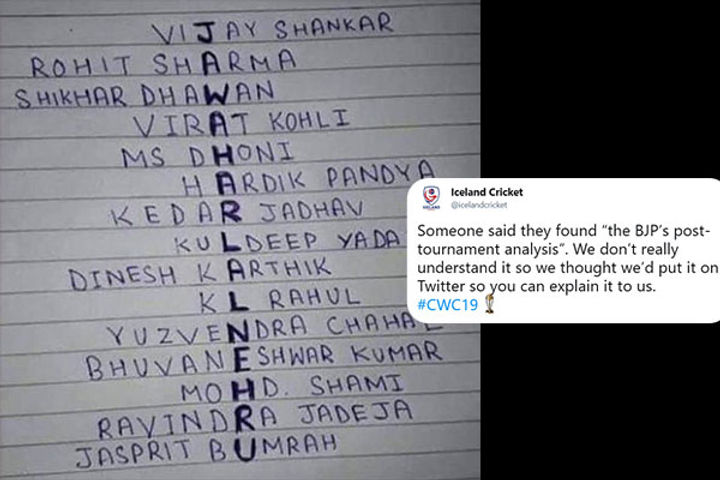 VIJAY SHANKAR
ROHIT SHARMA
SHIKHAR DHAWAN
VIRAT KOHLI
MS DHONI
HARDIK PANDYA
KEDAR JADHAV
KULDEEP YADA
DINESH KARTHIK
KL RAHUL
YUZVENDRA CHAHAL
BHUVANESHWAR KUMAR
MOHD. SHAMI
RAVINDRA JADEJA
JASPRIT BUMRAH
Iceland Cricket
@icelandcricket
Someone said they found "the BJP's post-
tournament analysis". We don't really
understand it so we thought we'd put it on
Twitter so you can explain it to us.
#CWC19